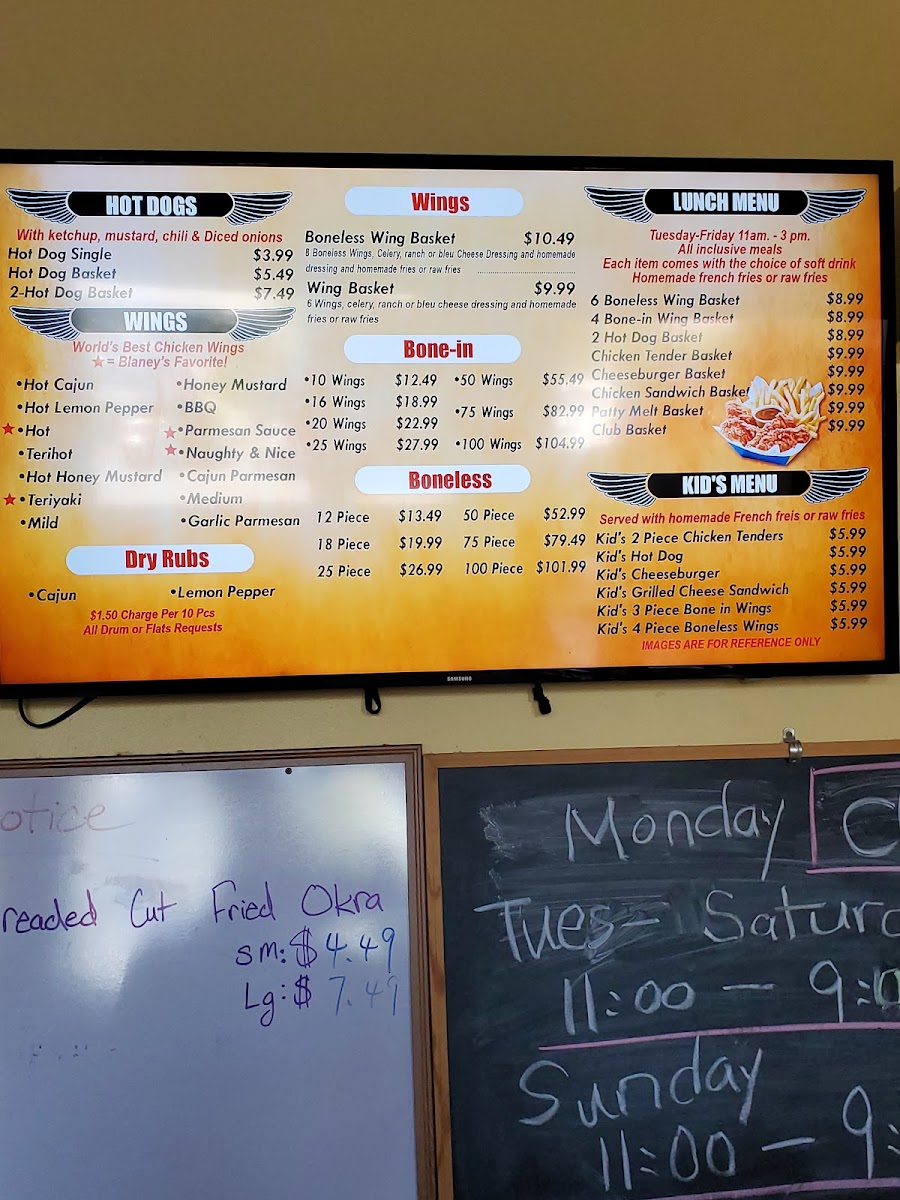 HOT DOGS
With ketchup, mustard, chili & Diced onions
Hot Dog Single $3.99
Hot Dog Basket $5.49
2-Hot Dog Basket $7.49
WINGS
World's Best Chicken Wings
★= Blaney's Favorite!
•Hot Cajun
•Hot Lemon Pepper
★•Hot
•Terihot
•Hot Honey Mustard
★•Teriyaki
•Mild
•Honey Mustard
•BBQ
★•Parmesan Sauce
★•Naughty & Nice
•Cajun Parmesan
•Medium
•Garlic Parmesan
Dry Rubs
•Cajun •Lemon Pepper
$1.50 Charge Per 10 Pcs
All Drum or Flats Requests
Wings
Boneless Wing Basket $10.49
8 Boneless Wings, Celery, ranch or bleu Cheese Dressing and homemade
dressing and homemade fries or raw fries
Wing Basket $9.99
6 Wings, celery, ranch or bleu cheese dressing and homemade
fries or raw fries
Bone-in
•10 Wings $12.49
•16 Wings $18.99
•20 Wings $22.99
•25 Wings $27.99
•50 Wings $55.49
•75 Wings $82.99
•100 Wings $104.99
Boneless
12 Piece $13.49 50 Piece $52.99
18 Piece $19.99 75 Piece $79.49
25 Piece $26.99 100 Piece $101.99
LUNCH MENU
Tuesday-Friday 11am. - 3 pm.
All inclusive meals
Each item comes with the choice of soft drink
Homemade french fries or raw fries
6 Boneless Wing Basket $8.99
4 Bone-in Wing Basket $8.99
2 Hot Dog Basket $8.99
Chicken Tender Basket $9.99
Cheeseburger Basket $9.99
Chicken Sandwich Basket $9.99
Patty Melt Basket $9.99
Club Basket $9.99
KID'S MENU
Served with homemade French freis or raw fries
Kid's 2 Piece Chicken Tenders $5.99
Kid's Hot Dog $5.99
Kid's Cheeseburger $5.99
Kid's Grilled Cheese Sandwich $5.99
Kid's 3 Piece Bone in Wings $5.99
Kid's 4 Piece Boneless Wings $5.99
IMAGES ARE FOR REFERENCE ONLY
SAMSUNG
otice
readed Cut Fried Okra
sm: $ 4.49
Lg: $ 7.49
Monday Cl
Tues- Satur
11:00 - 9:0
Sunday
11:00 - 9: